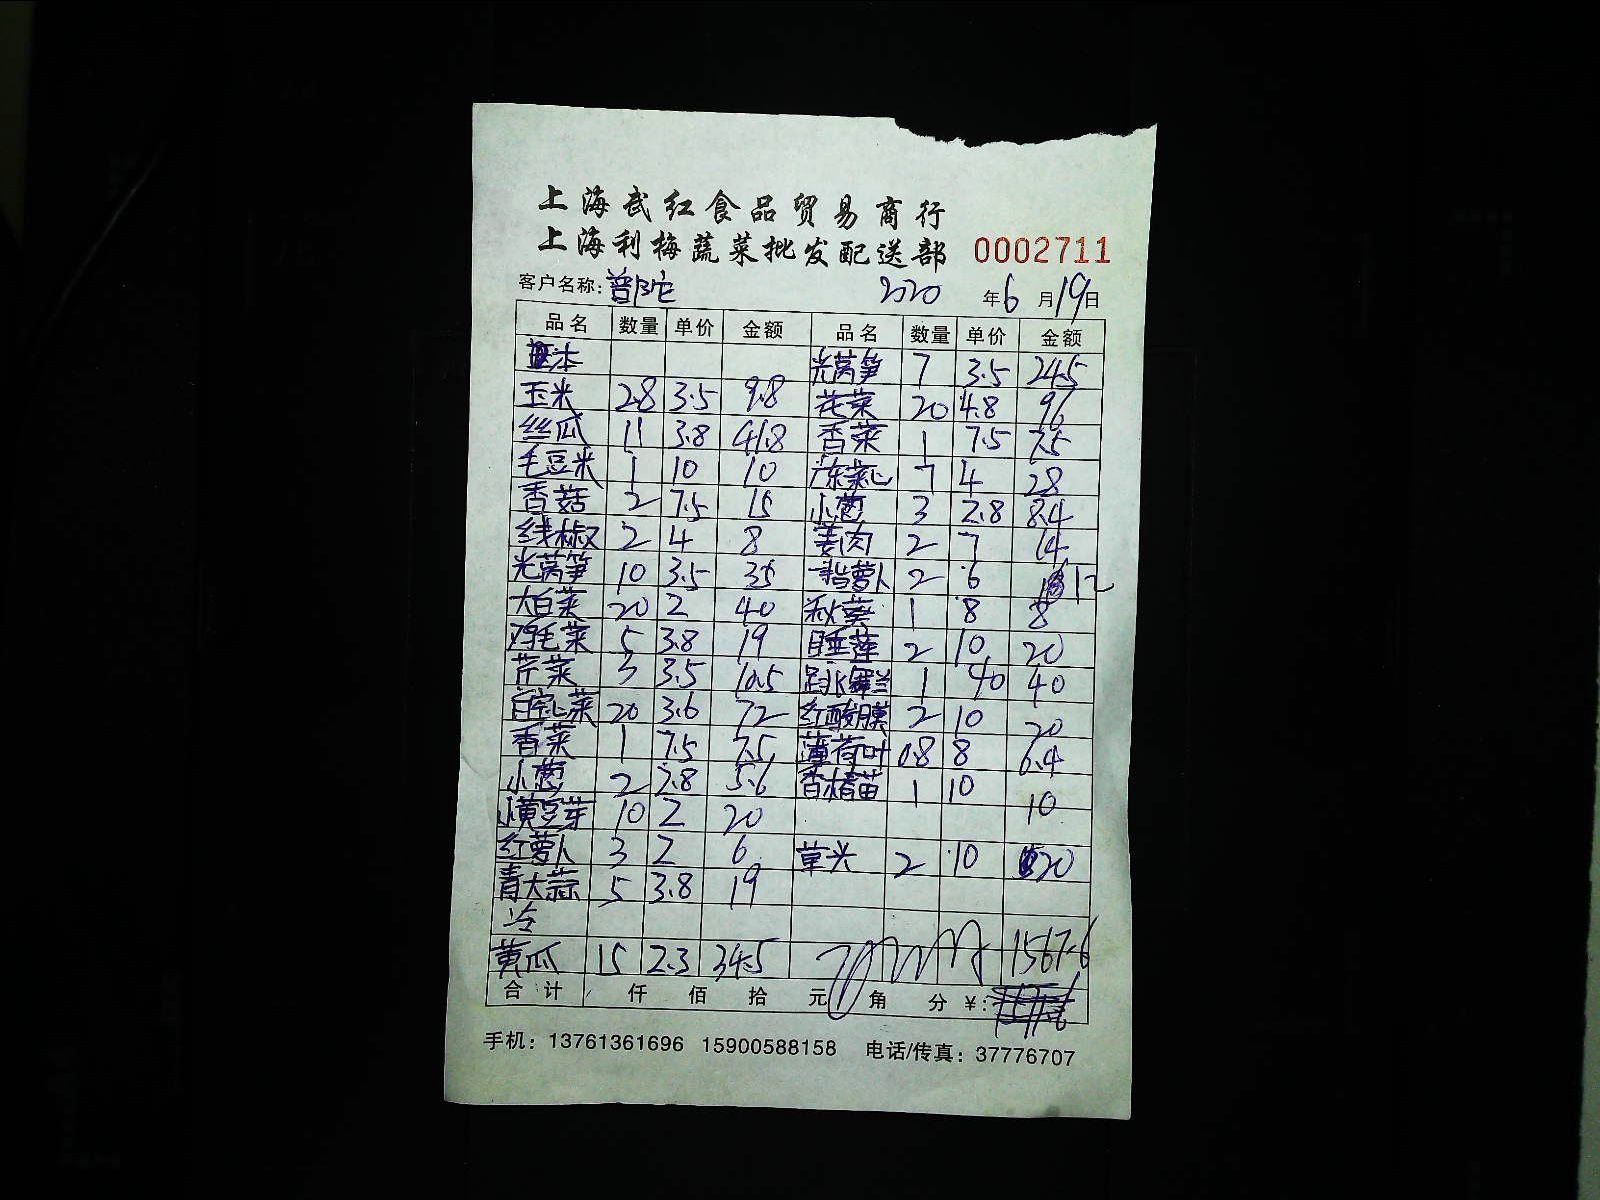 上海武红食品贸易商行
上海利梅蔬菜批发配送部 0002711
客户名称: 普陀 2020 年 6 月 19 日
品名 数量 单价 金额 品名 数量 单价 金额
光莴笋 7 3.5 24.5
玉米 2.8 3.5 9.8 花菜 20 4.8 96
丝瓜 11 3.8 41.8 香菜 1 7.5 7.5
毛豆米 1 10 10 广东菜心 7 4 28
香菇 2 7.5 15 小葱 3 2.8 8.4
线椒 2 4 8 姜肉 2 7 14
光莴笋 10 3.5 35 手指萝卜 2 6 12
大白菜 20 2 40 秋葵 1 8 8
鸡毛菜 5 3.8 19 睡莲 2 10 20
芹菜 3 3.5 10.5 跳舞兰 1 40 40
空心菜 20 3.6 72 红酸膜 2 10 20
香菜 1 7.5 7.5 薄荷叶 0.8 8 6.4
小葱 2 2.8 5.6 香椿苗 1 10 10
黄豆芽 10 2 20
红萝卜 3 2 6 草头 2 10 20
青大蒜 5 3.8 19
冷
黄瓜 15 2.3 34.5 1567.6
合计 仟 佰 拾 元 角 分 ¥:
手机: 13761361696 15900588158 电话/传真: 37776707